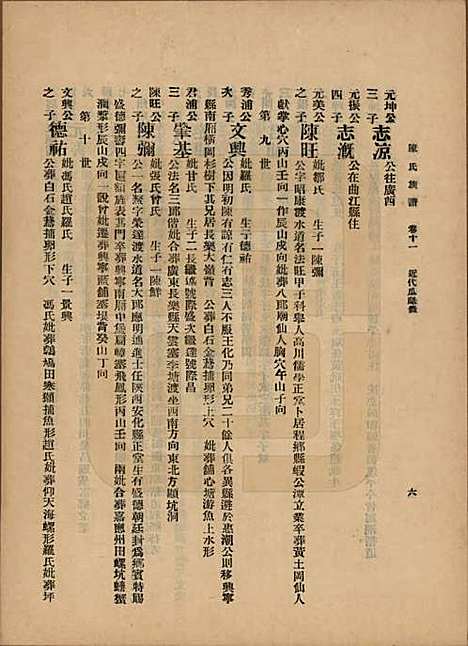 陳氏族譜　卷十一　近代瓜瓞
六
元坤公
三子　志凉　公住廣西
元振公
四子　志漑　公在曲江縣住
元美公　妣鄒氏　生子一陳彌
之子　陳旺　公字昭康渡水道名法旺甲子科舉人高川儒學正堂卜居程鄉縣蝦公潭立業卒葬黃土岡仙人
獻掌心穴丙山壬向一作辰山戌向妣葬八郎廟仙人胸穴午山子向
第九世
秀浦公　妣羅氏　生子一德祐
次子　文興　公因明初陳有諒有仁有志三人不服王化乃同弟兄二十餘人俱各異縣遷於惠潮公則移興寧
縣南厢橫閣杉樹下其兄居長樂大嶺背　公葬白石金鵞捕卵形上穴　妣葬鋪心塘游魚上水形
君浦公　妣甘氏　生子三盛際盛次盛際昌
三子　肇基　公法名三郎偕妣合葬廣東長樂縣天雲寨李塘渡坐西南方向東北方顯坑洞
陳旺公　妣張氏曾氏　生子一陳鮮
之子　陳彌　公一名榮字榮達渡水道名大郎應明通進士任陝西安化縣正堂生有盛德朝廷封爲鄉賓特賜
盛德彌壽四字匾額旌表其門卒葬興寧南厢中堡扇嶂寨飛鳳形丙山壬向　兩妣合葬嘉應州田螺坑螃蟹
瀾蘩形辰山戌向一說曾妣遷葬興寧羆鋪寨堤背癸山丁向
第十世
文興公　妣馮氏趙氏羅氏　生子一景興
之子　德祐　公葬白石金鵞捕卵形下穴　馮氏妣葬鷓鳩田寒顯捕魚形趙氏妣葬仰天海螺形羅氏妣葬坪